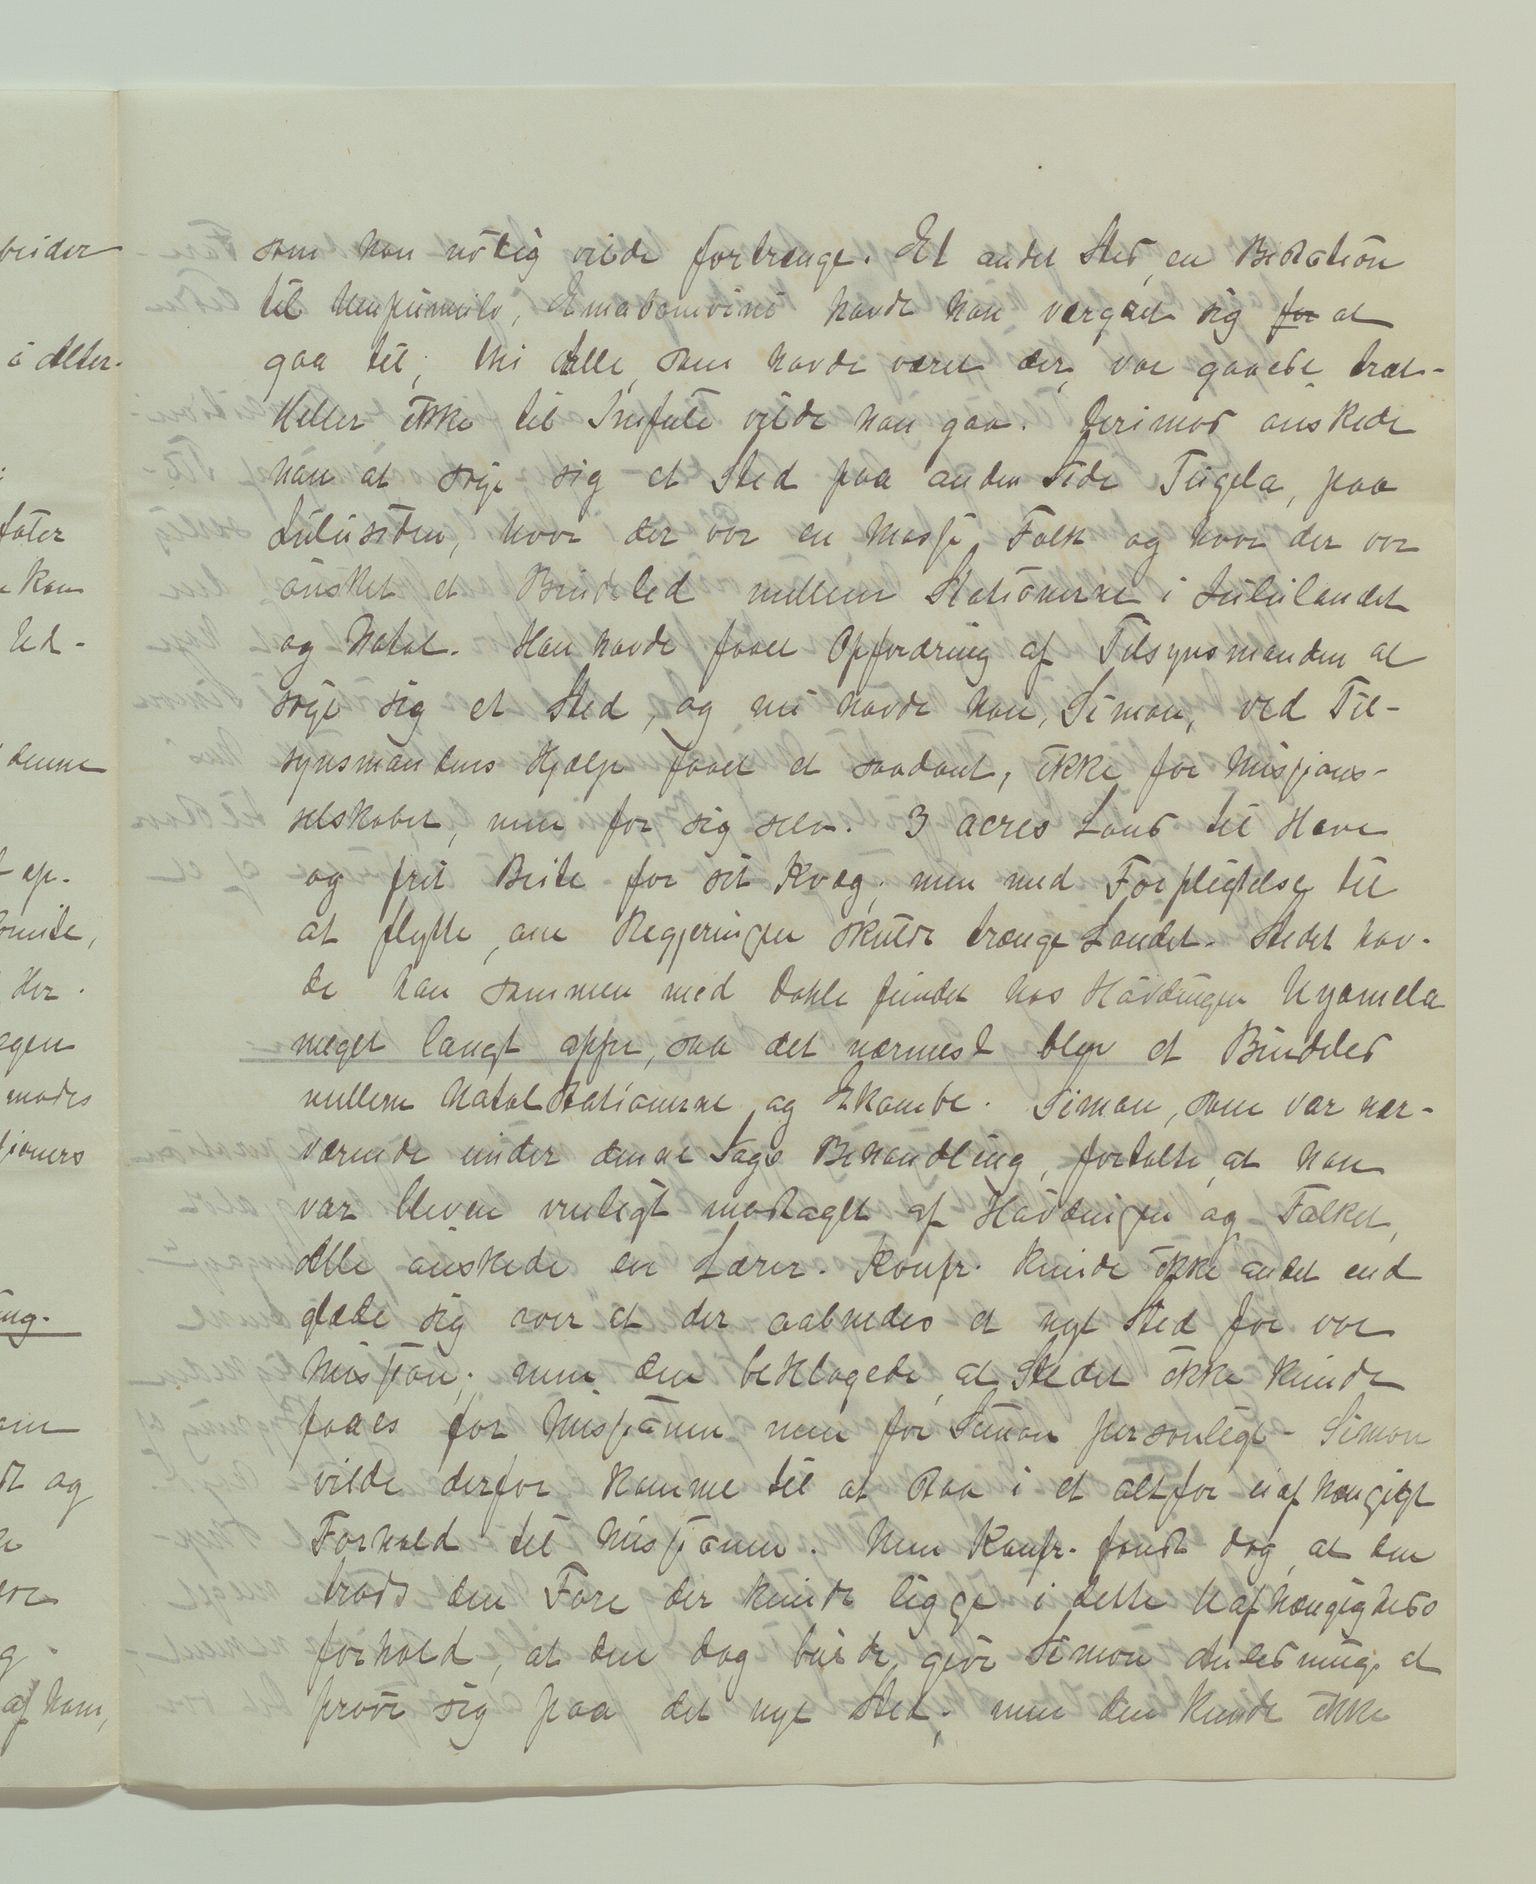 som han nötig vilde fortrænge. Et andet Sted, en Bistation
til Umpumulo, Ematomvini havde han værgret sig for at
gaa til; thi Alle, som havde været der, var gaaede træt.
Heller ikke til Imfule vilde han gaa. Derimod önskede
han at söge sig et Sted paa anden Side Tugela, paa
Zulusiden, hvor der var en Masse Folk og hvor der var
önsket et Bindeled mellem Stationerne i Zululandet
og Natal. Han havde faaet Opfordring af Tilsynsmanden at
söge sig et Sted, og nu havde han, Simon, ved Til-
synsmandens Hjælp faaet et saadant, ikke for Missions-
selskabet, men for sig selv. 3 acres Land til Have
og frit Beite for sit Kvæg; men med Forpligtelse til
at flytte, om Regjeringen skulde trænge Landet. Stedet hav-
de han sammen med Dahle fundet hos Hövdingen Nyamela
meget langt oppe, saa det nærmest blev et Bindeled
mellem Natal Stationerne og Ekombe. Simon, som var nær-
værende under denne Sags Behandling, fortalte, at han
var bleven venligt modtaget af Hövdingen og Folket,
Alle önskede en Lærer. Konfr. kunde ikke andet end
glæde sig over at der aabnedes et nyt Sted for vor
Mission; men den beklagede, at Stedet ikke kunde
faaes for Missionen men for Simon personligt. Simon
vilde derfor komme til at staa i et altfor uafhængigt
Forhold til Missionen. Men Konfr. fandt dog, at den
trods den Fare der kunde ligge i dette Uafhængigheds
forhold, at den dog burde give Simon Anledning at
pröve sig paa det nye Sted; men den kunde ikke